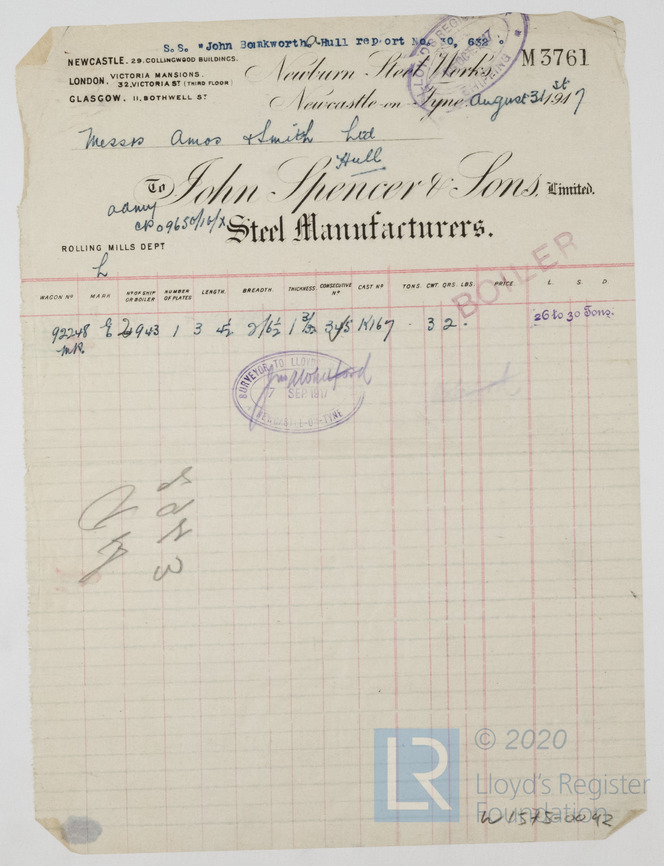 S.S. "John Bomkworth" Hull report No. 30, 632.
NEWCASTLE. 29. COLLINGWOOD BUILDINGS.
LONDON. VICTORIA MANSIONS.
32, VICTORIA ST (THIRD FLOOR)
GLASGOW. 11, BOTHWELL ST
Newburn Steel Works,
M3761
Newcastle-on-Tyne, August 31st 1917
Messrs Amos & Smith Ltd
Hull
To John Spencer & Sons, Limited.
Steel Manufacturers.
ROLLING MILLS DEPT
BOILER
WAGON No MARK No OF SHIP OR BOILER NUMBER OF PLATES LENGTH. BREADTH. THICKNESS. CONSECUTIVE No CAST No TONS. CWT. QRS. LBS. PRICE. L. S. D.
92248 1 3 4½ 2/6½ K167 3 2 26 to 30 Tons.
SURVEYOR TO LLOYD
7 SEP 1917
NEWCASTLE-ON-TYNE
© 2020
LR
Lloyd's Register
Foundation
W1575-0092